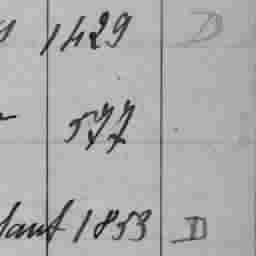 1429 D
577
1853 D